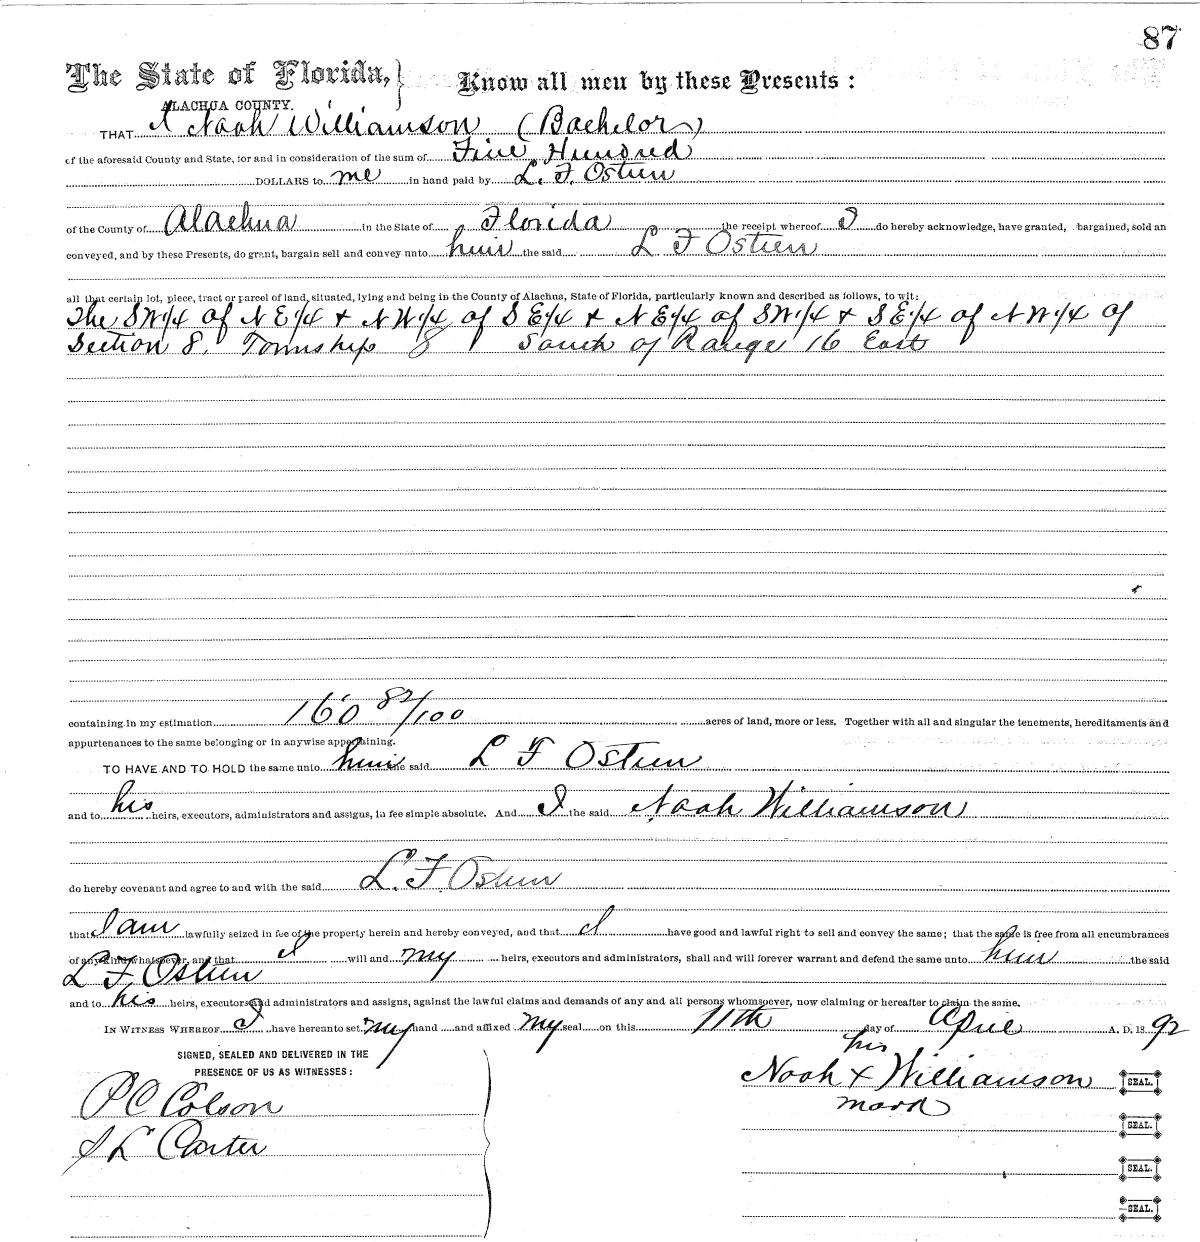 87
The State of Florida, } Know all men by these Presents:
ALACHUA COUNTY.
THAT I Noah Williamson (Bachelor)
of the aforesaid County and State, for and in consideration of the sum of Five Hundred
DOLLARS to me in hand paid by L. F. Osteen
of the County of Alachua in the State of Florida the receipt whereof I do hereby acknowledge, have granted, bargained, sold an
conveyed, and by these Presents, do grant, bargain sell and convey unto him the said L F Osteen
all that certain lot, piece, tract or parcel of land, situated, lying and being in the County of Alachua, State of Florida, particularly known and described as follows, to wit:
The SW1/4 of NE1/4 & NW1/4 of SE1/4 & NE1/4 of SW1/4 & SE1/4 of NW1/4 of
Section 8. Township 8 South of Range 16 East
containing in my estimation 160 82/100 acres of land, more or less. Together with all and singular the tenements, hereditaments and
appurtenances to the same belonging or in anywise appertaining.
TO HAVE AND TO HOLD the same unto him the said L F Osteen
and to his heirs, executors, administrators and assigns, in fee simple absolute. And I the said Noah Williamson
do hereby covenant and agree to and with the said L. F. Osteen
that I am lawfully seized in fee of the property herein and hereby conveyed, and that I have good and lawful right to sell and convey the same; that the same is free from all encumbrances
of any kind whatsoever, and that I will and my heirs, executors and administrators, shall and will forever warrant and defend the same unto him the said
L F Osteen
and to his heirs, executors and administrators and assigns, against the lawful claims and demands of any and all persons whomsoever, now claiming or hereafter to claim the same.
IN WITNESS WHEREOF I have hereunto set my hand and affixed my seal on this 11th day of April A. D. 18 92
SIGNED, SEALED AND DELIVERED IN THE
PRESENCE OF US AS WITNESSES:
his
Noah X Williamson SEAL.
mark
P C Colson
SEAL.
S L Carter
SEAL.
SEAL.